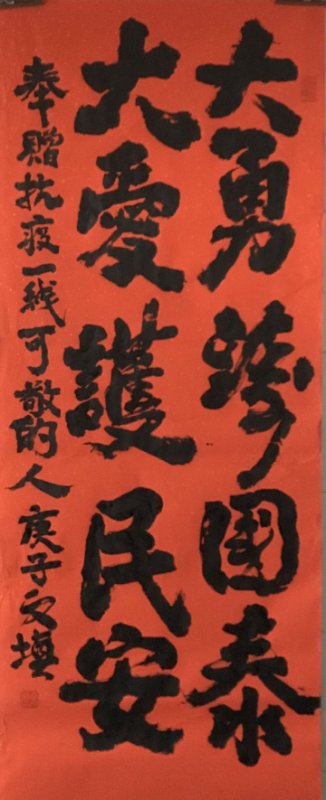 大勇铸國泰
大愛護民安
奉贈抗疫一线可敬的人庚子文填